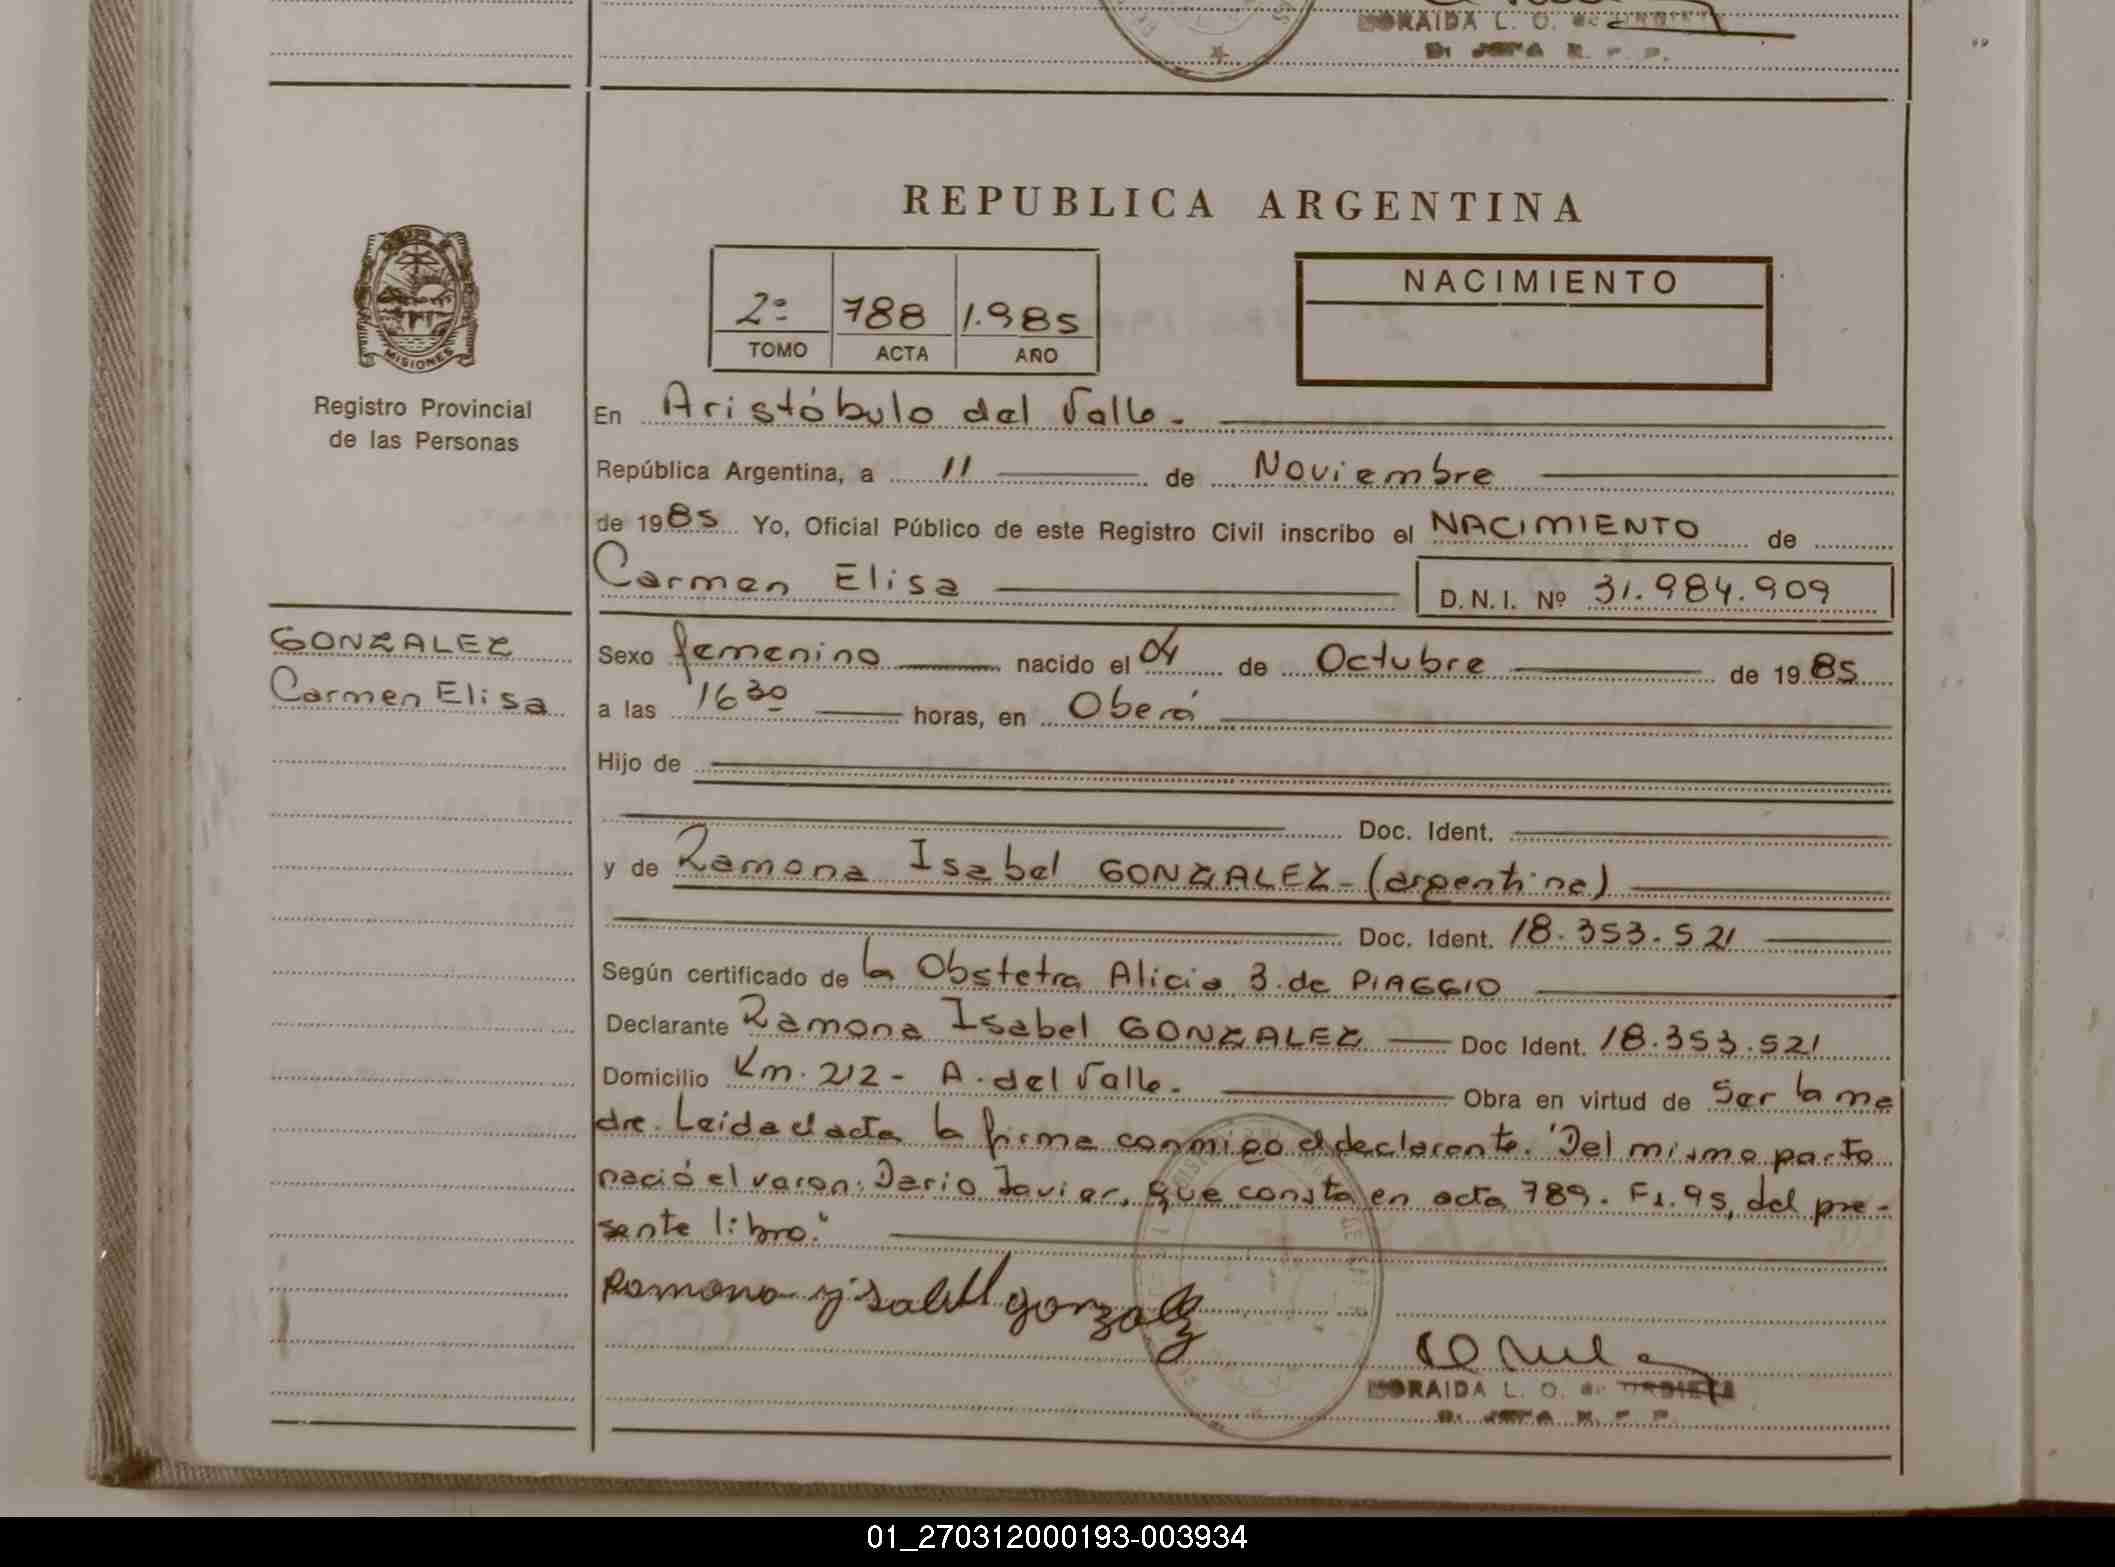 MORAIDA L. O. de URBIETA
REPUBLICA ARGENTINA
NACIMIENTO
2º 788 1.985
TOMO ACTA AÑO
MISIONES
Registro Provincial
de las Personas
En Aristóbulo del Valle.
República Argentina, a 11 de Noviembre
de 1985 Yo, Oficial Público de este Registro Civil inscribo el NACIMIENTO de
Carmen Elisa D.N.I. Nº 31.984.909
GONZALEZ
Carmen Elisa
Sexo femenino nacido el 04 de Octubre de 1985
a las 16 30 horas, en Oberá
Hijo de
Doc. Ident.
y de Ramona Isabel GONZALEZ - (argentina)
Doc. Ident. 18.353.521
Según certificado de la Obstetra Alicia B. de PIAGGIO
Declarante Ramona Isabel GONZALEZ Doc Ident. 18.353.521
Domicilio Km. 212 - A. del Valle. Obra en virtud de Ser la ma
dre. Leida el acta la firma conmigo el declarante. "Del mismo parto
nació el varon: Dario Javier, que consta en acta 789. Fs. 95, del pre-
sente libro."
Ramona ysabel gonzalez
MORAIDA L. O. de URBIETA
01_270312000193-003934